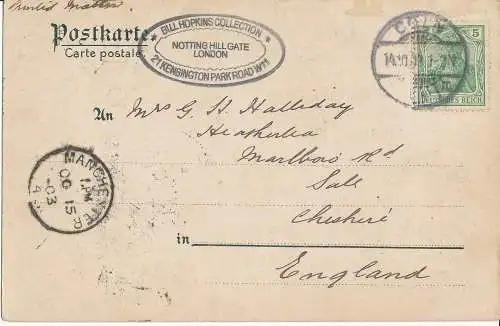 Printed Matter.
Postkarte.
Carte postale.
BILL HOPKINS COLLECTION
NOTTING HILL GATE
LONDON
21 KENSINGTON PARK ROAD W11
5
DEUTSCHES REICH
An
Mrs G. S. Halliday
Marlboro Rd
Sale
Cheshire
in
England
MANCHESTER
OC 15
03